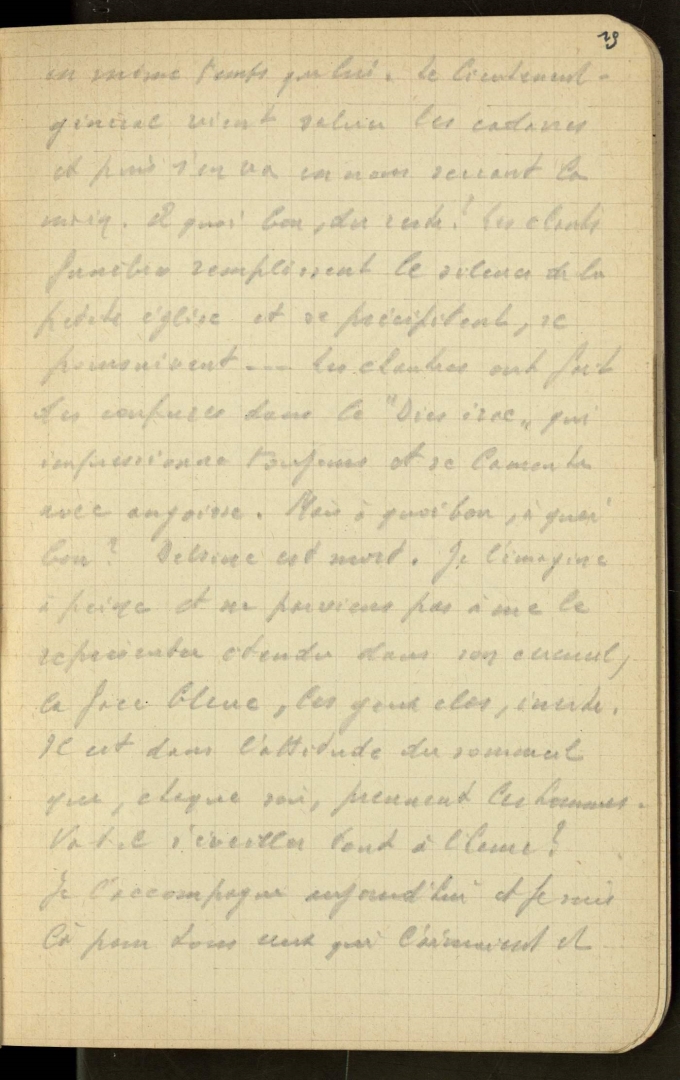 29
en même temps que lui. Le lieutenant-
général vient saluer les cadavres
et puis s'en va en nous serrant la
main. A quoi bon, du reste! Les chants
funèbres remplissent le silence de la
petite église et se précipitent, se
poursuivent --- Les chantres ont fait
des coupures dans le "Dies irae" qui
impressionne toujours et se lamente
avec angoisse. Mais à quoi bon, à quoi
bon? est mort. Je l'imagine
à peine et ne parviens pas à me le
représenter étendu dans son cercueil,
la face bleue, les yeux clos, inerte.
Il est dans l'attitude du sommeil
que, chaque soir, prennent les hommes.
Va t-il s'éveiller tout à l'heure?
Je l'accompagne aujourd'hui et je suis
là pour tous ceux qui l'aimaient et